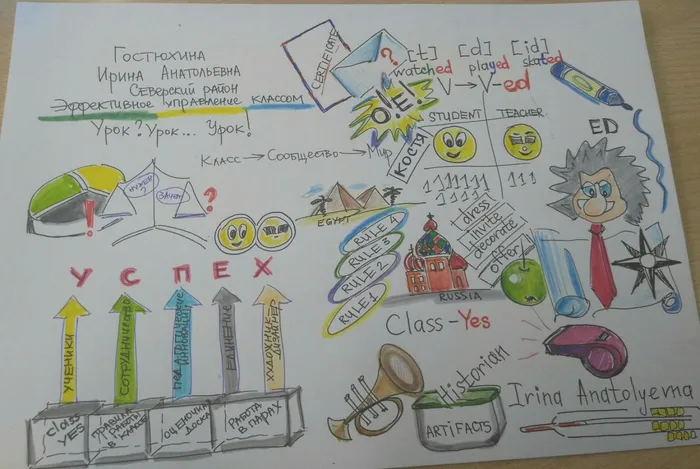 Гостюхина
Ирина Анатольевна
Северский район
Эффективное управление классом
Урок? Урок... Урок!
Класс → Сообщество → Мир
НУЖЕН?
ЗАЧЕМ
?
!
УСПЕХ
УЧЕНИКИ
СОТРУДНИЧЕСТВО
ПЕДАГОГИЧЕСКИЕ
ИННОВАЦИИ
ЕДИНЕНИЕ
ХУДОЖНИК
ДИЗАЙНЕР
class
YES
ПРАВИЛА
РАБОТЫ
В
КЛАССЕ
ОЦЕНОЧНАЯ
ДОСКА
РАБОТА
В ПАРАХ
CERTIFICATE
?
[t] [d] [id]
watched played skated
V → V-ed
O!E!
КОСТЯ
STUDENT TEACHER
ED
EGYPT
RULE 4
RULE 3
RULE 2
RULE 1
dress
invite
decorate
offer
RUSSIA
Class-Yes
Historian
ARTiFACTS
Irina Anatolyevna